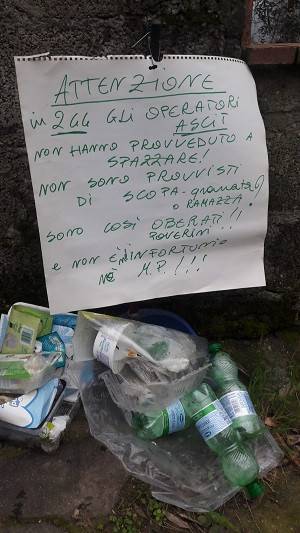 ATTENZIONE
in 2GG GLI OPERATORI
ASCIT
NON HANNO PROVVEDUTO A
SPAZZARE!
NON SONO PROVVISTI
DI SCOPA-granata?
O RAMAZZA?
SONO COSÌ OBERATI!!
POVERINI
e NON È INFORTUNIO
NÈ M.P.!!!